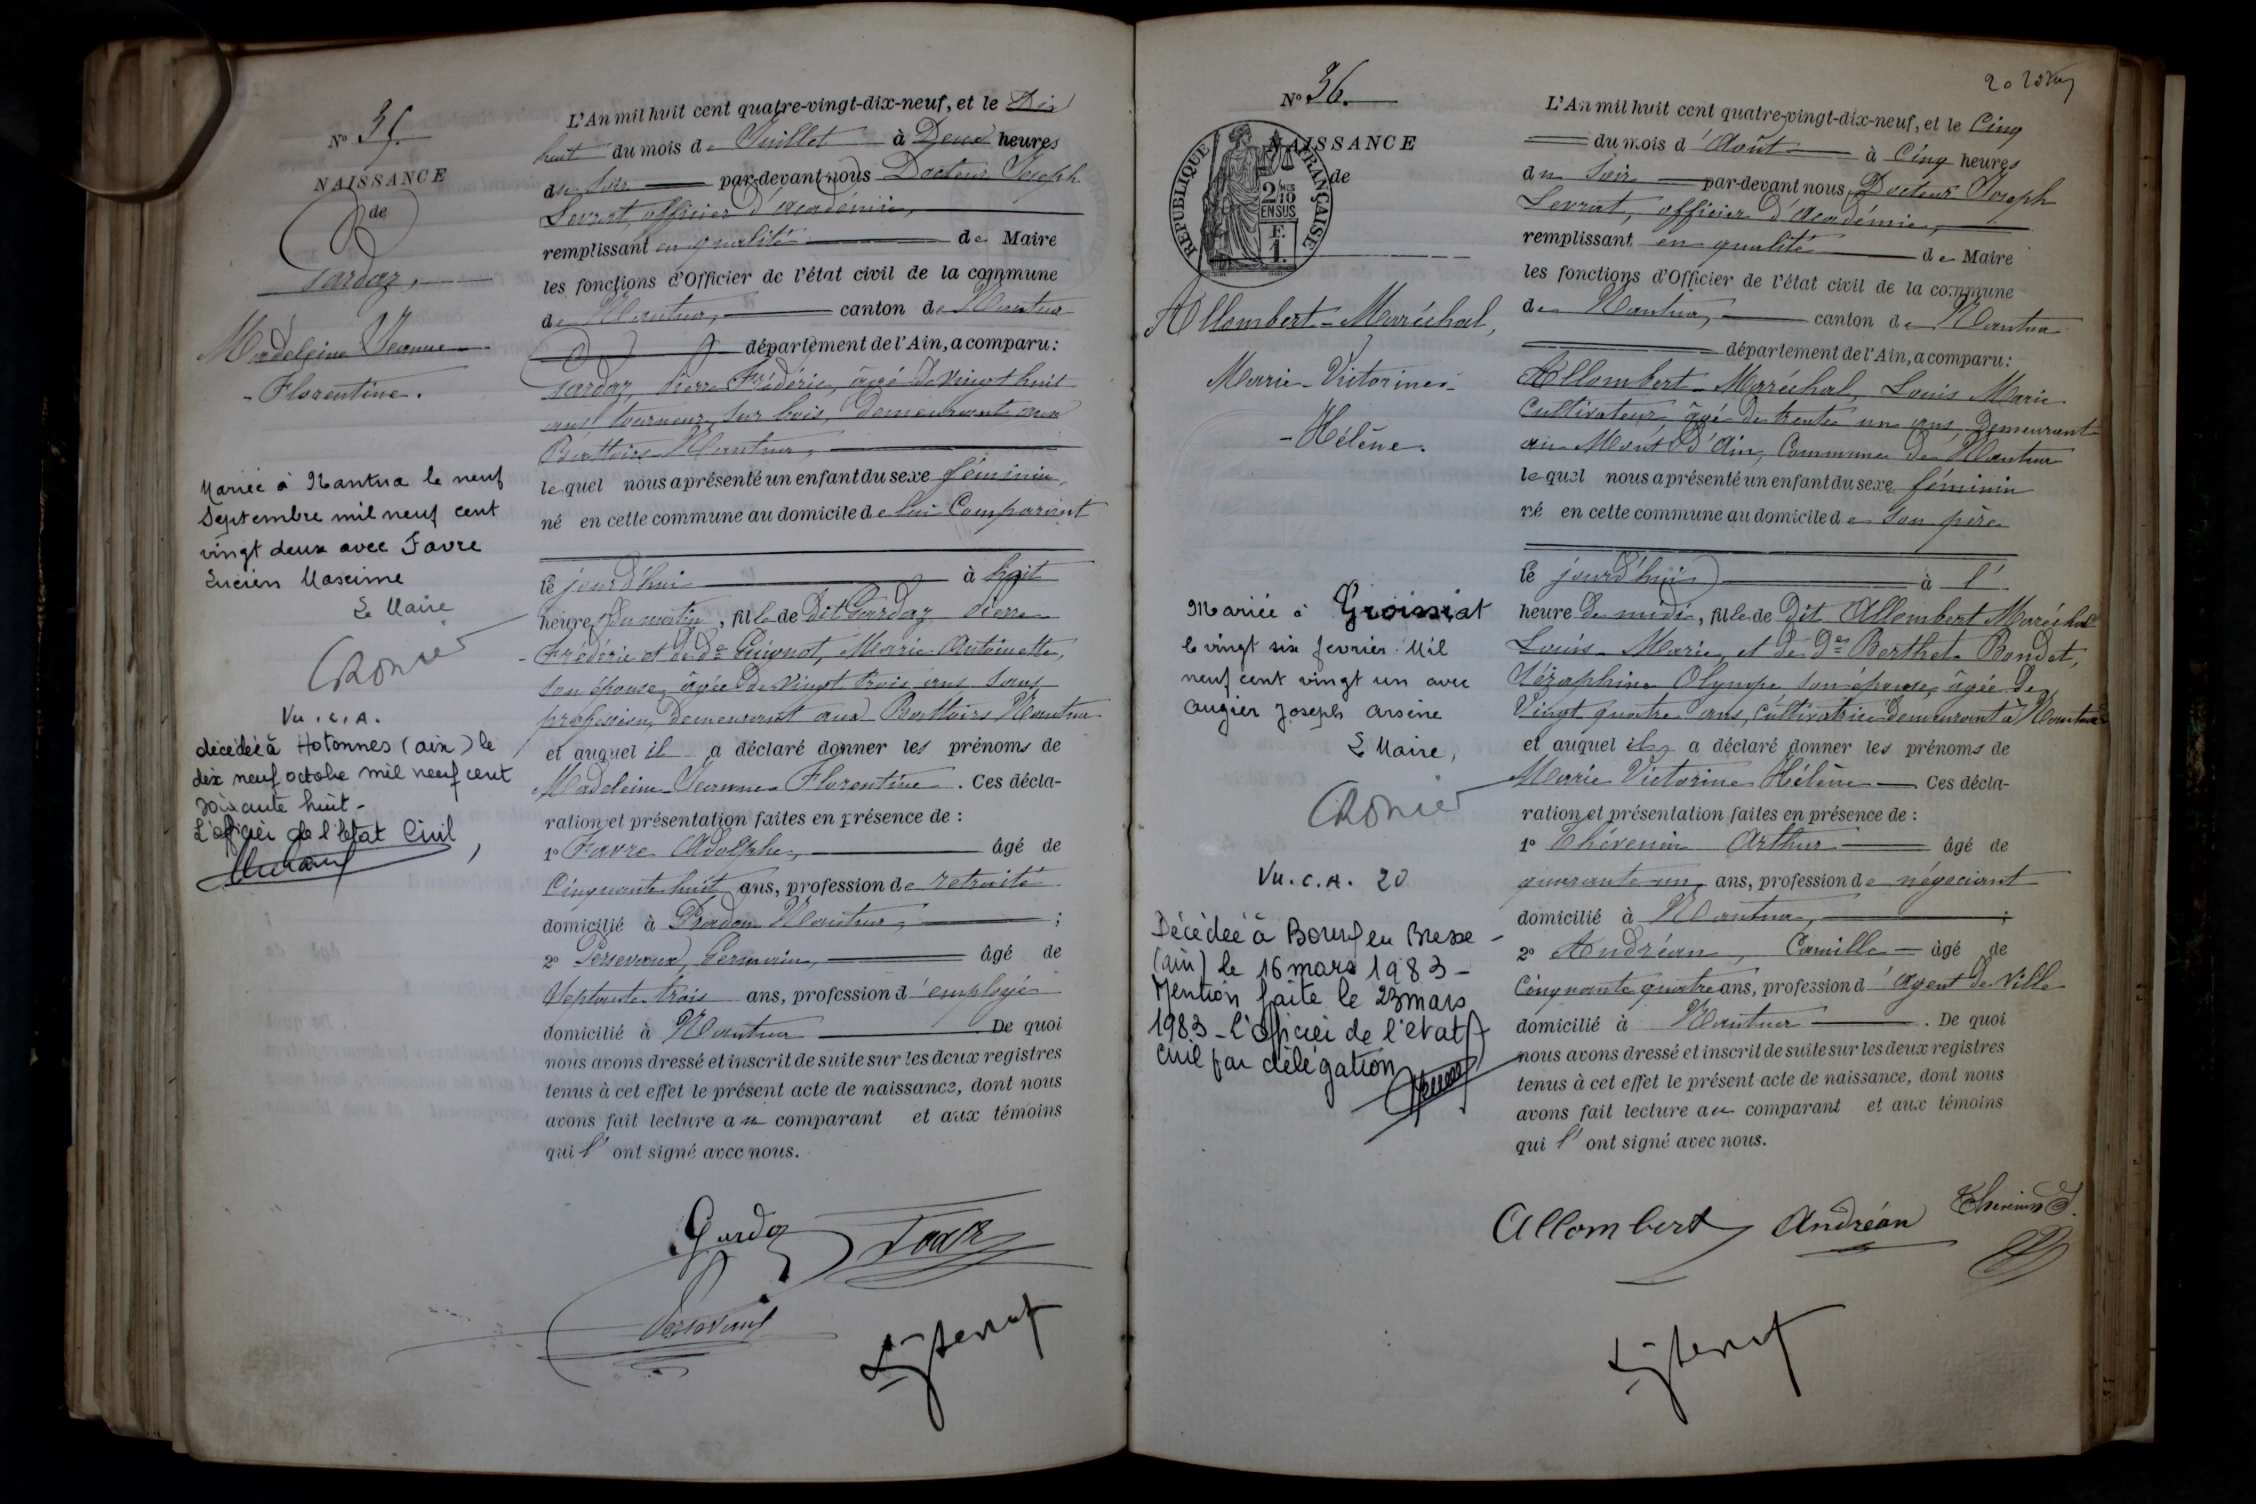 N° 35.
NAISSANCE
de
Gardaz,
Madeleine Jeanne
- Florentine.
Mariée à Nantua le neuf
Septembre mil neuf cent
vingt deux avec Favre
Lucien Maxime
Le Maire
Vu. C. A.
décédée à Hotonnes (ain) le
dix neuf octobre mil neuf cent
soixante huit -
L'officier de l'état Civil,
L'An mil huit cent quatre-vingt-dix-neuf, et le Dix
huit du mois de Juillet à Deux heures
du soir par-devant nous Docteur Joseph
Levrat, officier d'académie,
remplissant en qualité de Maire
les fonctions d'Officier de l'état civil de la commune
de Nantua, canton de Nantua
département de l'Ain, a comparu:
Gardaz, Pierre Frédéric, âgé de vingt huit
ans, tourneur sur bois, demeurant aux
Battoirs Nantua,
lequel nous a présenté un enfant du sexe féminin,
né en cette commune au domicile de lui Comparant
le jourd'hui à huit
heures du matin, fille de dit Gardaz Pierre
- Frédéric et de De Guignot, Marie Antoinette,
son épouse, âgée de vingt trois ans sans
profession, demeurant aux Battoirs Nantua
et auquel il a déclaré donner les prénoms de
Madeleine Jeanne Florentine. Ces décla-
ration et présentation faites en présence de :
1° Favre Adolphe, âgé de
Cinquante huit ans, profession de retraité
domicilié à Pradon Nantua, ;
2° Persevaux, Germain, âgé de
Septante trois ans, profession d'employé
domicilié à Nantua De quoi
nous avons dressé et inscrit de suite sur les deux registres
tenus à cet effet le présent acte de naissance, dont nous
avons fait lecture au comparant et aux témoins
qui l'ont signé avec nous.
Gardaz Favre
N° 36.
NAISSANCE
de
RÉPUBLIQUE FRANÇAISE
2/10
EN SUS
F.
1.
Allombert-Maréchal,
Marie-Victorine-
-Hélène.
Mariée à Groissiat
le vingt six fevrier Mil
neuf cent vingt un avec
Augier Joseph Arsène
Le Maire,
Vu. C. A. 20
Décédée à Bourg en Bresse -
(ain) le 16 mars 1983 -
Mention faite le 23 mars
1983 - L'officier de l'état
civil par délégation
L'An mil huit cent quatre-vingt-dix-neuf, et le Cinq
du mois d'Août à Cinq heures
du Soir par-devant nous, Docteur Joseph
Levrat, officier d'Académie,
remplissant en qualité de Maire
les fonctions d'Officier de l'état civil de la commune
de Nantua, canton de Nantua
département de l'Ain, a comparu:
Allombert-Maréchal, Louis Marie
Cultivateur, âgé de trente un ans, Demeurant
au Mont d'Ain, Commune de Nantua
lequel nous a présenté un enfant du sexe féminin
né en cette commune au domicile de son père
le jourd'hui à l'
heure de midi, fille de Dit Allombert Maréchal
Louis-Marie, et de De Berthet-Bondet,
Sézaphine Olympe, son épouse, âgée de
Vingt quatre ans, cultivatrice demeurant à Nantua
et auquel il a déclaré donner les prénoms de
Marie Victorine Hélène Ces décla-
ration et présentation faites en présence de :
1° Thévenin Arthur âgé de
quarante un, ans, profession de négociant
domicilié à Nantua, ;
2° Andréan, Camille âgé de
Cinquante quatre ans, profession d'agent de Ville
domicilié à Nantua . De quoi
nous avons dressé et inscrit de suite sur les deux registres
tenus à cet effet le présent acte de naissance, dont nous
avons fait lecture au comparant et aux témoins
qui l'ont signé avec nous.
Allombert Andréan Thévenin